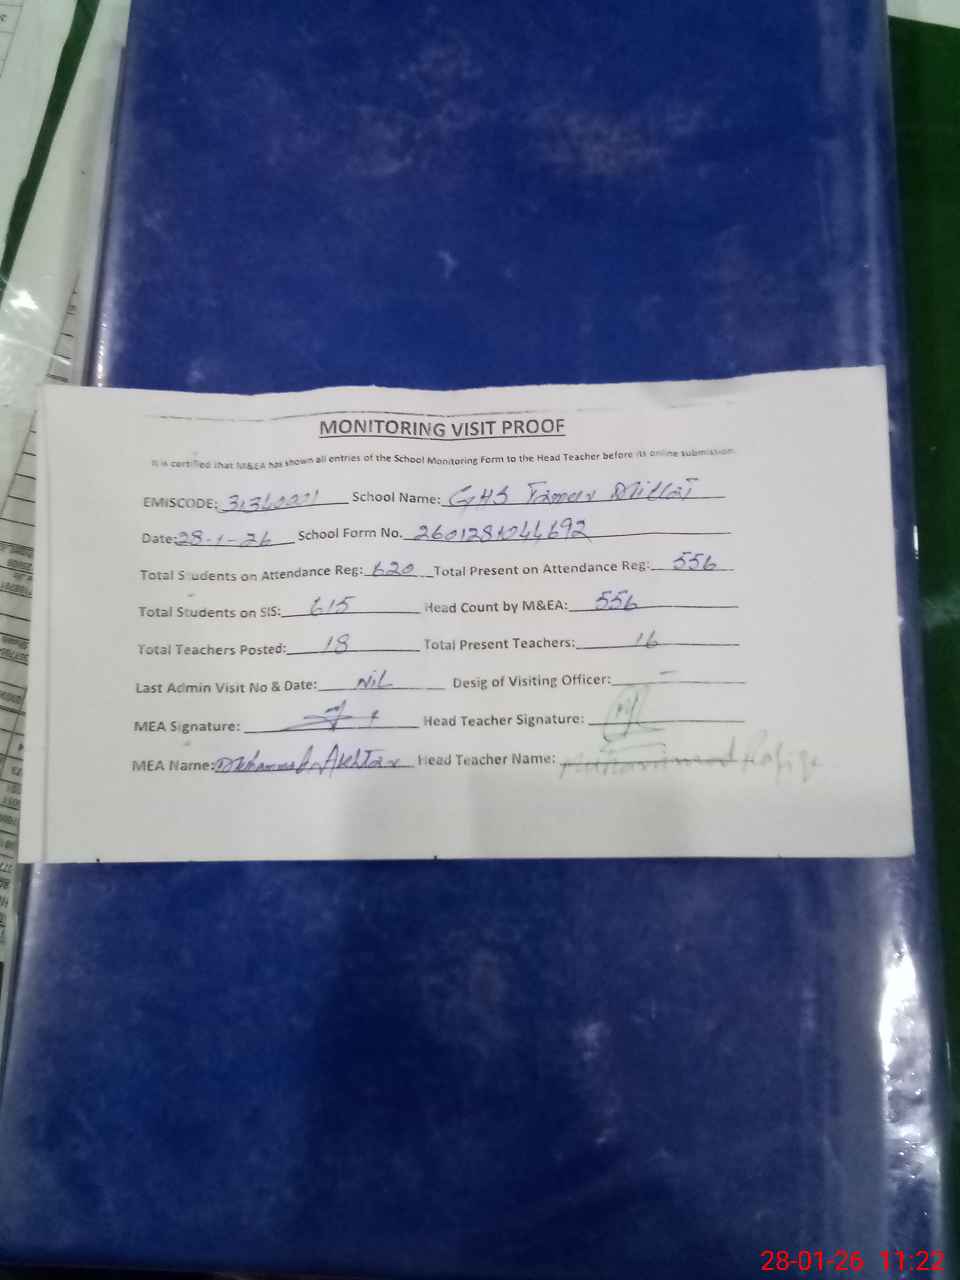 MONITORING VISIT PROOF
It is certified that M&EA has shown all entries of the School Monitoring Form to the Head Teacher before its online submission.
EMISCODE: School Name: GHS Tameer Millat
Date: 28-1-26 School Form No.
Total Students on Attendance Reg: 620 Total Present on Attendance Reg: 556
Total Students on SIS: 615 Head Count by M&EA: 556
Total Teachers Posted: 18 Total Present Teachers: 16
Last Admin Visit No & Date: Nil Desig of Visiting Officer: —
MEA Signature: Head Teacher Signature:
MEA Name: Muhammad Akhtar Head Teacher Name: Muhammad Rafiq
28-01-26 11:22